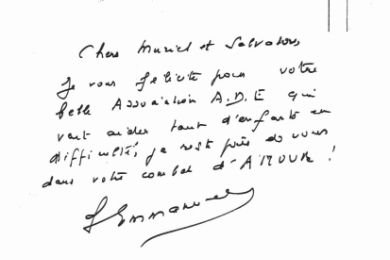 Chers Muriel et Salvatore,
Je vous felicite pour votre
belle Association A.D.E qui
vont aider tant d'enfants en
difficultés, je reste près de vous
dans votre combat d'AMOUR !
S Emmanuelle